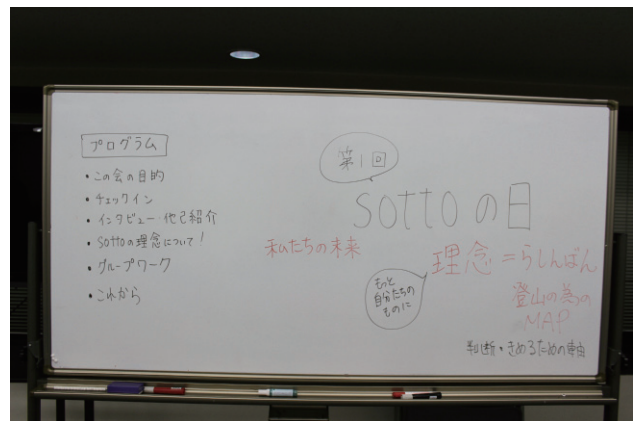 プログラム
・この会の目的
・チェックイン
・インタビュー・他己紹介
・sottoの理念について!
・グループワーク
・これから
第1回
sottoの日
私たちの未来
理念=らしんばん
もっと
自分たちの
ものに
登山の為の
MAP
判断・きめるための